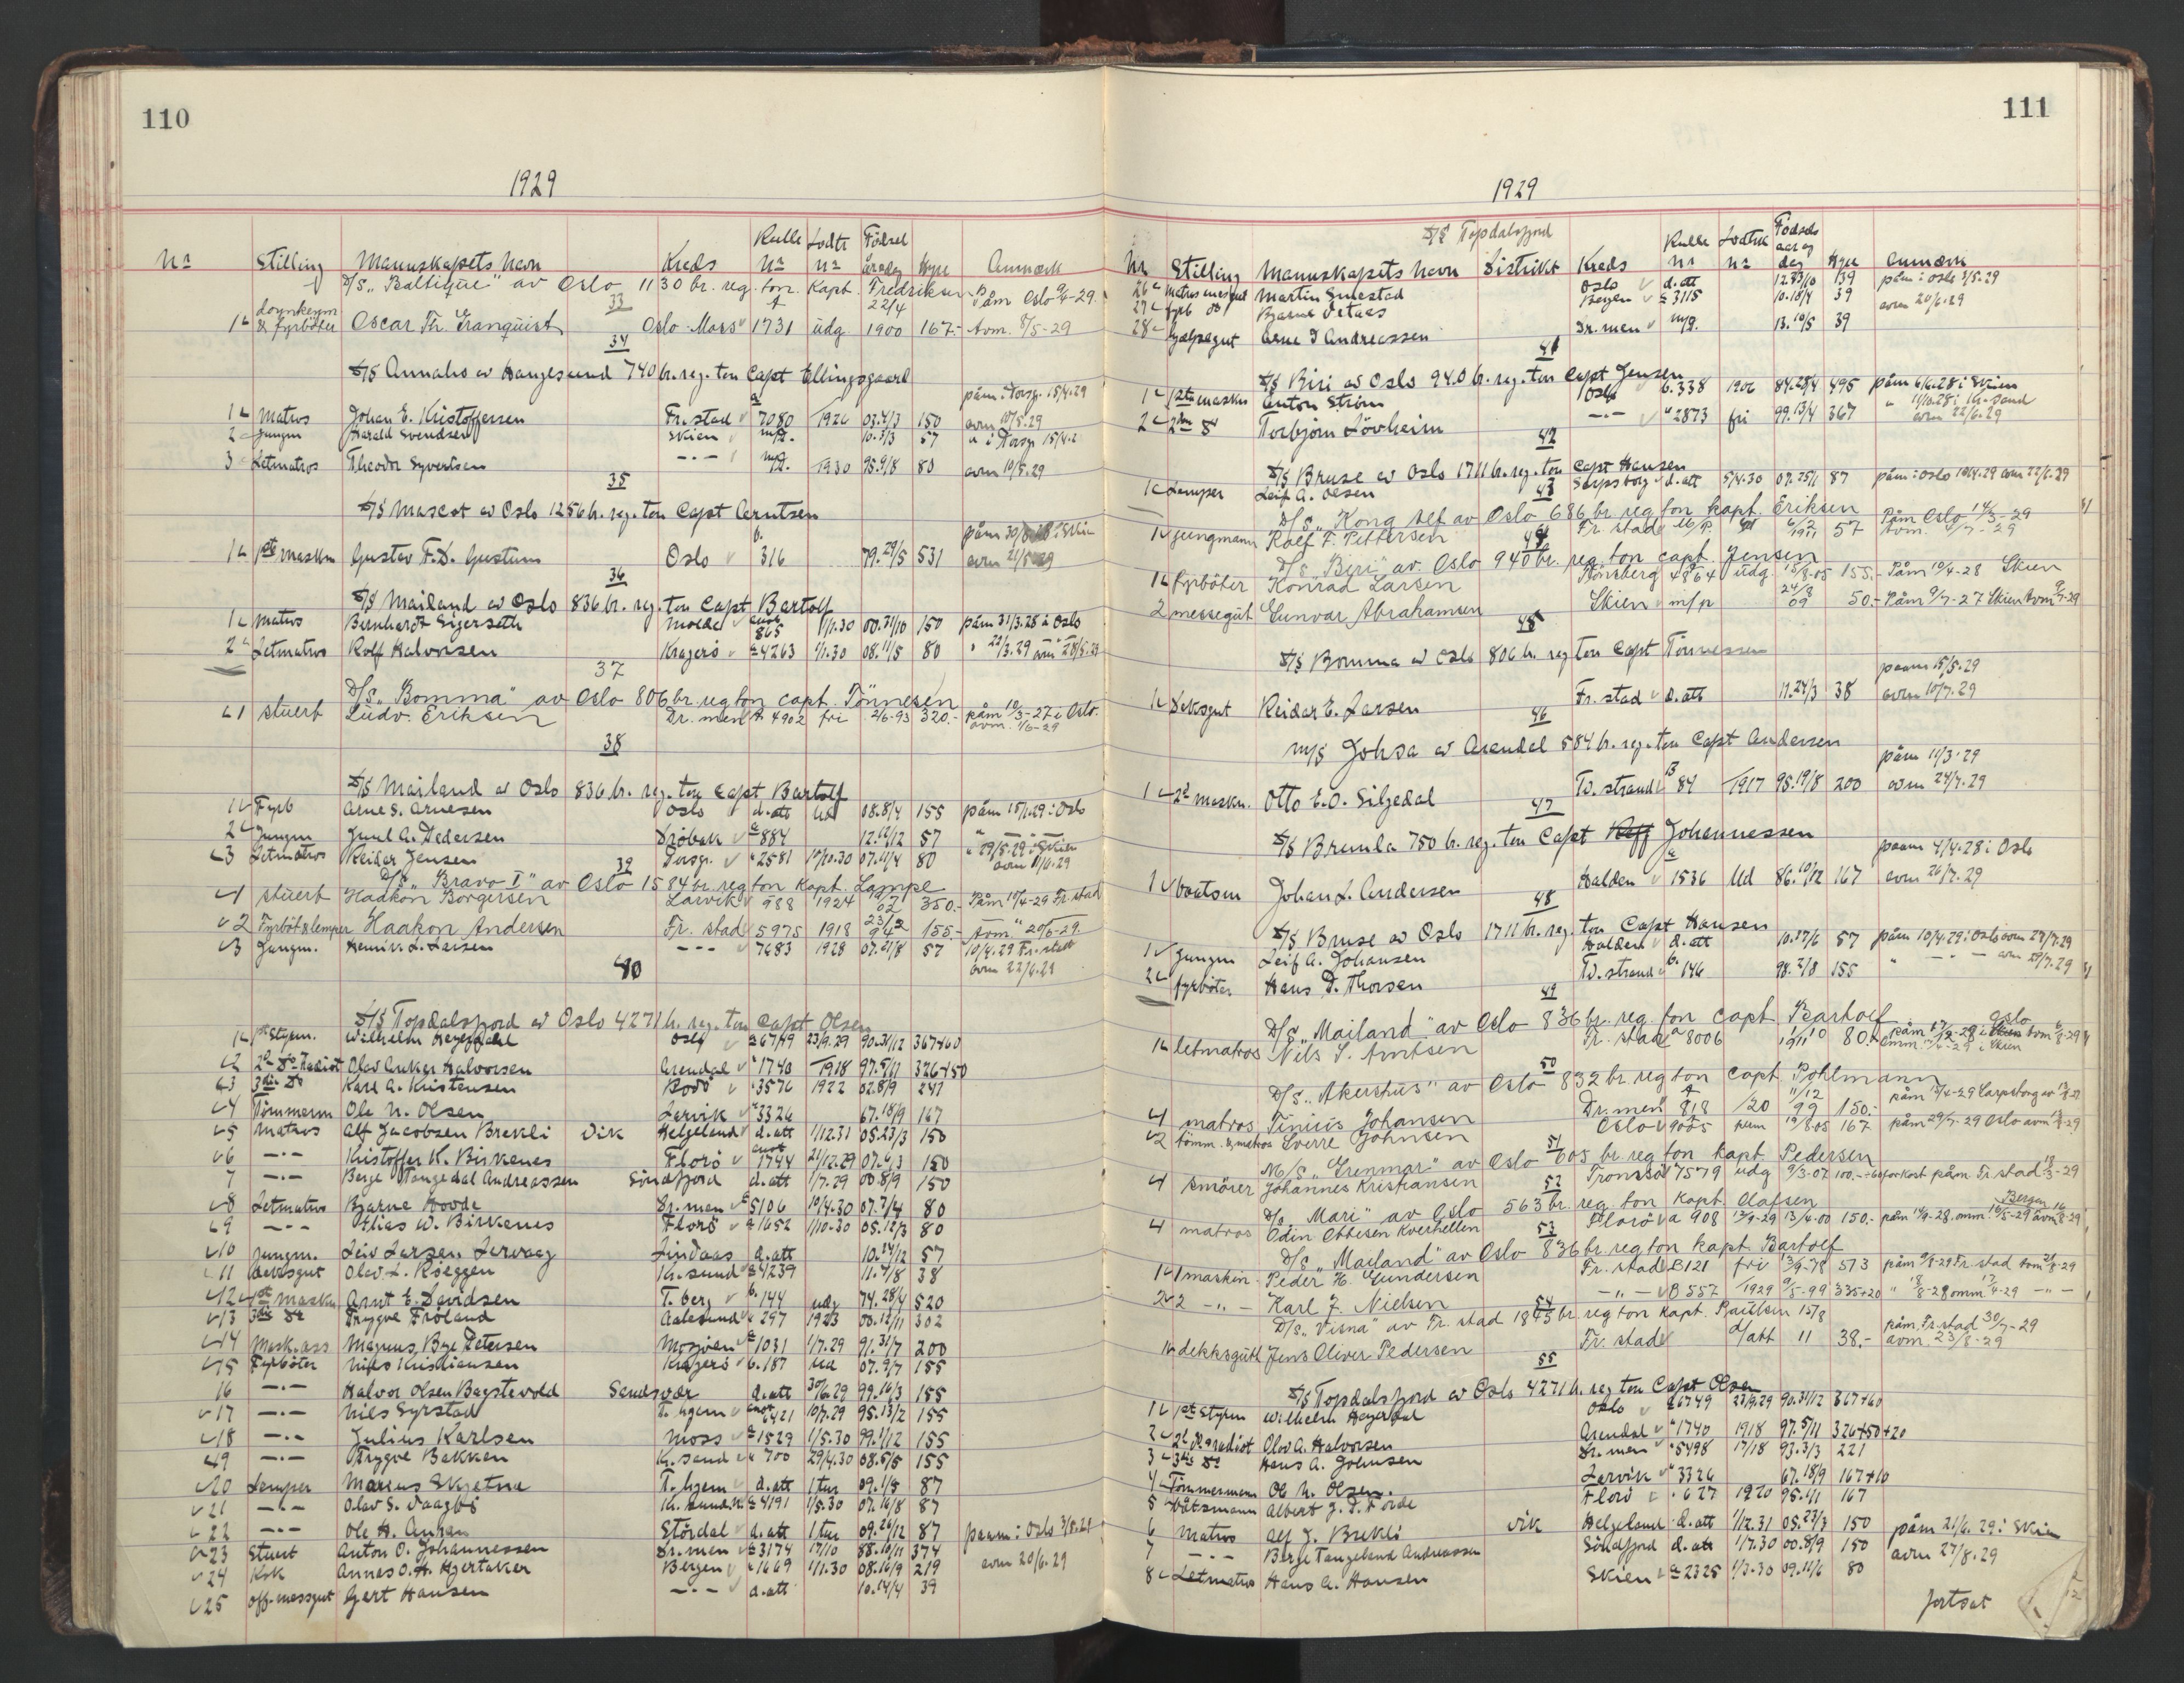 110
1929
Nr Stilling Mannskapets Navn Kreds Rulle Nr Lodtr nr Fødsel år & dag Hyre Anmærk
D/S "Baltique" av Oslo 1130 br. reg. ton. Kapt. Fredriksen
33
1 donnkeym & fyrböter Oscar Th. Granquist Oslo Mars A 1731 udg 22/4 1900 167.- Påm Oslo 9/4-29. Avm. 8/5-29
34
D/S Annaho av Haugesund 740 br. reg. ton Capt Ellingsgaard
1 Matros Johan E. Kristoffersen Fr.stad a 7080 1926 03.4/3 150 påm i Porsgr. 15/4.29 avm 10/5.29
2 Jungm Harald Svendsen Skien m/p. 10.3/3 57 " i Porsgr 15/4.2
3 Letmatros Theodor Syvertsen -"- m/p. 1930 95.9/8 80 avm 10/5.29
35
D/S Mascot av Oslo 1256 br. reg. ton Capt Arntsen
1 1ste Maskn Gustav F.D. Gustum Oslo b. 316 79.29/5 531 avm 21/5 29
36
D/S Mailand av Oslo 836 br. reg. ton Capt Bartolf
1 Matros Bernhardt Sigerseth Molde 865 1/1.30 00.31/10 150 påm 31/3.28 i Oslo
2 Letmatros Rolf Halvorsen Kragerö a 4263 1/1.30 08.11/5 80 " 22/3.29 avm 28/5.29
37
D/S. "Bomma" av Oslo 806 br reg ton capt. Tönnesen
1 stuert Ludv. Eriksen Dr. men A. 4902 fri 2/6-93 320.- påm 10/3-27 i Oslo. avm. 1/6-29
38
D/S Mailand av Oslo 836 br. reg. ton Capt Bartolf
1 Fyrb Arne S. Arnesen Oslo d.att Ud 08.8/4 155 påm 15/1.29 i Oslo
2 Jungm Juul A. Pedersen Dröbak a 884 12.12/12 57 " - " -
3 Letmatros Reidar Jensen Porsgr. " 2581 17/10.30 07.11/4 80 " 29/5.29 i Skien avm 11/6.29
39
D/S. "Bravo I" av Oslo 1584 br reg ton Kapt. Lampe
1 stuert Haakon Borgersen Larvik 988 1924 02 350.- Påm 10/4-29 Fr. stad
2 Fyrböt & lemper Haakon Andersen Fr. stad 5975 1918 23/2 94 155.- Avm. " 20/6-29.
3 Jungm. Henrik L. Larsen -"- 7683 1928 07.21/8 57 10/4.29 Fr. stad avm 22/6.29
40
D/S Topdalsfjord av Oslo 4271 br. reg. ton Capt Olsen
1 1ste Styrm. Wilhelm Heyerdahl Oslo a 6749 23/9.29 90.31/12 367+60
2 2d do Radiot Olav Anker Halvorsen Arendal " 1740 1918 97.5/11 326+50
3 3die do Karl A. Kristensen Bodö " 3576 1922 02.8/9 241
4 Tömmerm Ole N. Olsen Larvik " 3326 67.18/9 167
5 Matros Alf Jacobsen Brekli Vik Helgeland d.att 1/12.31 05.23/3 150
6 -"- Kristoffer K. Birkenes Florö 1744 21/12.29 07.6/3 150
7 -"- Berge Tangedal Andreassen Söndfjord d.att 1/7.29 00.8/9 150
8 Letmatros Bjarne Hovde Dr. men a 5106 10/4.30 07.7/4 80
9 -"- Elias W. Birkenes Florö a 1652 1/10.30 05.12/3 80
10 Jungm. Leiv Larsen Lervaag Lindaas d.att 10.24/12 57
11 Deksgut Olav L. Röeggen Kr. sund a 4239 11.4/8 38
12 1ste Maskn Arnt E. Davidsen T. berg b. 144 udg 74.28/4 520
13 3die do Trygve Fröland Aalesund " 297 1923 00.12/11 302
14 Mask. ass Magnus Bye Petersen Mosjöen a 1031 1/7.29 91.31/7 200
15 Fyrböter Nils Kristiansen Kragerö b. 187 Ud 07.9/7 155
16 -"- Halvor Olsen Bagstevold Sandsvær d.att 30/6.29 99.16/3 155
17 -"- Nils Syrstad T. hjem 6421 10/7.29 95.13/2 155
18 -"- Julius Karlsen Moss a 1529 1/5.30 99.1/12 155
19 -"- Trygve Bakken K. sand " 700 29/4.30 08.5/5 155
20 Lemper Marius Skjetne T. hjem d.att 1 tur 09.1/5 87
21 -"- Olav S. Vaagbö K. sund N. a 4191 1/5.30 07.16/8 87
22 -"- Ole H. Aunan Stördal d.att 1 tur 09.26/12 87 paam i Oslo 3/5.29
23 Stuert Anton O. Johannessen Dr. men a 3174 17/10 88.10/11 374 avm 20/6.29
24 Kok Annes O.H. Hjertaker Bergen " 1669 1/11.30 08.16/9 219
25 off. messgut Gert Hansen -"- d.att 10.14/4 39
111
1929
D/S Topdalsfjord
Nr Stilling Mannskapets Navn Distrikt Kreds Rulle nr Lodtræk nr Födsels aar og dag Hyre Anmærk
26 Matros messgut Martin Smestad Oslo d.att 12.23/10 39 påm i Oslo 3/5.29
27 fyrb do Bjarne Vetaas Bergen a 3115 10.18/4 39 avm 20/6.29
28 hjælpegut Arne I Andreassen Dr. men m/p. 13.10/5 39
41
D/S Biri av Oslo 940 br. reg. ton Capt Jensen
1 1ste Maskn Anton Ström Oslo b. 338 1906 84.28/4 495 påm 6/6.28 i Skien
2 2den do Torbjörn Lövheim -"- " 2873 fri 99.13/4 367 " 11/10.28 i Kr. sand avm 22/6.29
42
D/S Bruse av Oslo 1711 br. reg. ton Capt Hansen
1 Lemper Leif A. Olsen Sarpsborg d.att 5/4.30 07.25/1 87 påm i Oslo 10/4.29 avm 22/6.29
43
D/S. "Kong Alf av Oslo 686 br reg ton kapt. Eriksen
1 jungmann Rolf F. Pettersen Fr. stad M/p. 6/2 1911 57 Påm Oslo 14/3-29 Avm. 4/7-29
44
D/S "Biri" av. Oslo 940 br. reg. ton capt. Jensen
1 fyrböter Konrad Larsen Tönsberg 4864 udg. 15/8-05 155.- Påm 10/4-28 Skien
2 messegut Gunvar Abrahamsen Skien m/p 24/8 09 50.- Påm 9/7-27 Skien Avm 9/7-29
45
D/S Bomma av Oslo 806 br. reg ton Capt Tönnessen
1 Deksgut Reidar E. Larsen Fr. stad d.att 11.24/3 38 paam 15/5.29 avm 10/7.29
46
M/S Johsa av Arendal 584 br. reg. ton Capt Andersen
1 2d maskn. Otto E.O. Siljedal Tv. strand B 84 1917 98.19/8 200 påm 11/3.29 avm 24/7.29
47
D/S Brunla 750 br. reg. ton Capt Johannessen
1 baatsm Johan L. Andersen Halden a 1536 Ud 86.10/12 167 paam 4/4.28 i Oslo avm 26/7.29
48
D/S Bruse av Oslo 1711 br. reg. ton Capt Hansen
1 Jungm Leif A. Johansen Halden d.att 10.17/6 57 påm 10/4.29 i Oslo avm 29/7.29
2 fyrböter Hans D. Thorsen Tv. strand b. 146 98.2/8 155 " - " - avm 29/7.29
49
D/S "Mailand" av Oslo 836 br. reg. ton capt. Bartolf
1 letmatros Nils S. Arntsen Fr. stad a 8006 1/10 1911 80.-
50
D/S. "Akershus" av Oslo 832 br reg ton capt. Pohlmann
1 matros Tinius Johansen Dr. men A 818 /20 11/12 99 150.- påm 15/4-29 Sarpsborg
2 tömm. & matros Sverre Johnsen Oslo 9005 19/8.05 167 påm 29/7-29 Oslo
51
M/S "Grenmar" av Oslo 605 br reg ton kapt. Pedersen
1 smörer Johannes Kristiansen Tromsö 7579 udg 9/3-07 100.-+60 for kost påm Fr. stad
52
D/S "Mari" av Oslo 563 br reg ton kapt. Olafsen
1 matros Odin Ottesen Kverhellen Florö a 908 12/9-29 13/4-00 150.- påm
53
D/S "Mailand" av Oslo 836 br reg ton kapt. Bartolf
1 1 maskin. Peder H. Gundersen Fr. stad B 121 fri 3/9-78 513 påm 9/8-29 Fr. stad
2 2 -"- Karl J. Nielsen -"- B 557 1929 9/5-99 335+20
54
D/S "Visna" av Fr. stad 1845 br reg ton kapt. Paulsen 15/8
1 dekksgutt Jens Oliver Pedersen Fr. stad d/att 11 38.- påm. Fr. stad 30/7-29 avm. 23/8-29
55
D/S Topdalsfjord av Oslo 4271 br. reg ton Capt Olsen
1 1ste Styrm Wilhelm Heyerdal Oslo a 6749 23/9.29 90.31/12 367+60
2 2d do radiot Olav A. Halvorsen Arendal " 1740 1918 97.5/11 326+50+20
3 3die do Hans A. Johnsen Dr. men " 5498 17/18 97.3/3 221
4 Tömmermann Ole N. Olsen. Larvik " 3326 67.18/9 167+10
5 Båtsmann Albert J. P. Förde Florö " 627 1920 95.4/1 167
6 Matros Alf J. Brekli Vik Helgeland d.att 1/12.31 05.23/3 150 påm 21/6.29 i Skien
7 -"- Berge Tangeland Andreassen Söndfjord d.att 1/7.30 00.8/9 150 avm 27/8.29
8 Letmatros Hans A. Hansen Skien a 2325 1/3.30 09.11/6 80
fortsat